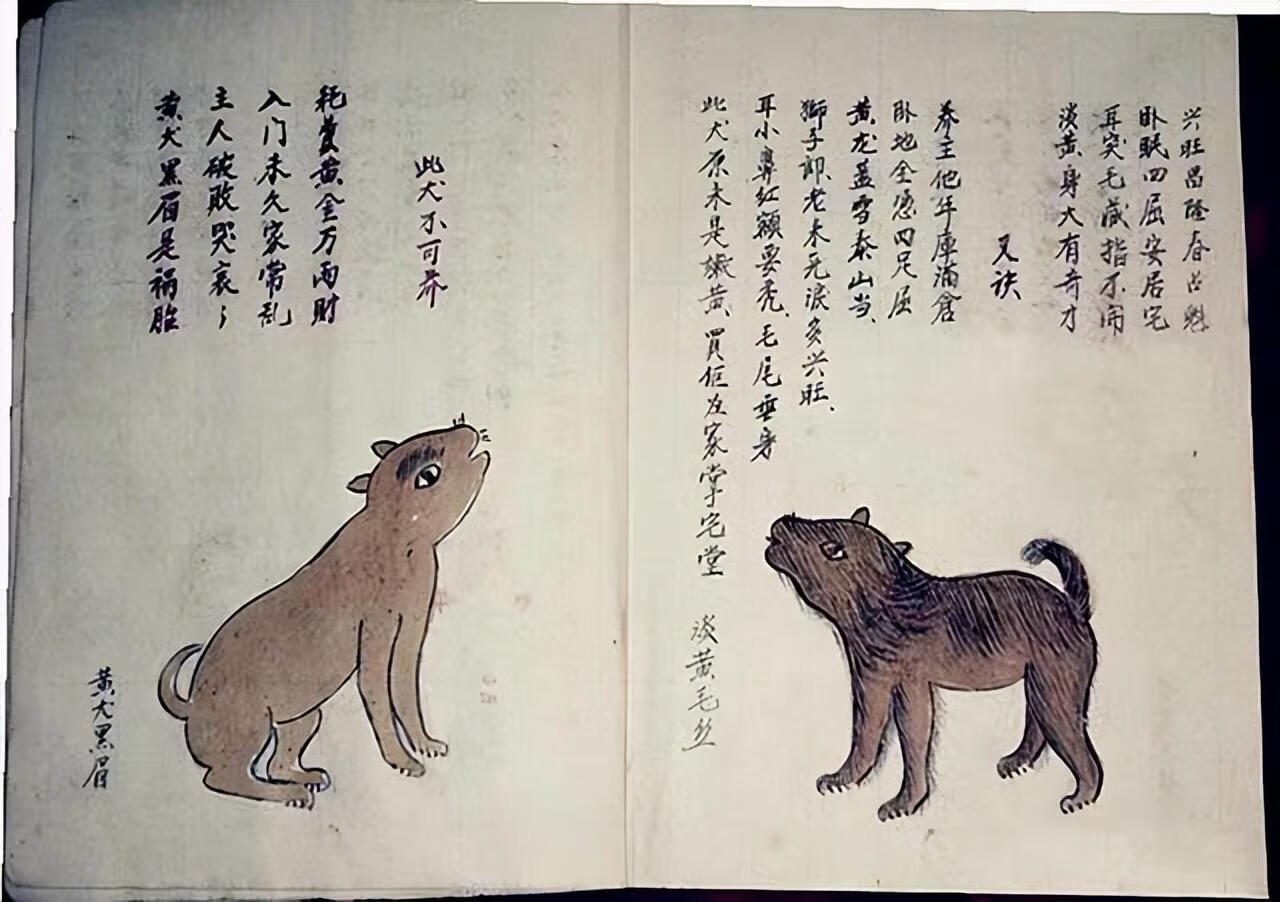 黄犬黑眉
黄犬黑眉是祸胎
主人破败哭哀〻
入门未久家常乱
耗费黄金万两财
此犬不可养
此犬原来是 黄、買 为家掌宅堂
淡黄毛丝
耳小鼻红额要秃、毛尾垂身
獅子郎、老来无淚多兴旺、
黄龙盖雪泰山当、
卧地全凭四足屈
养主他年庫满倉
又诀
淡黄身大有奇才
耳突毛藏指不闹
卧眠四屈安居宅
兴旺昌隆春占魁